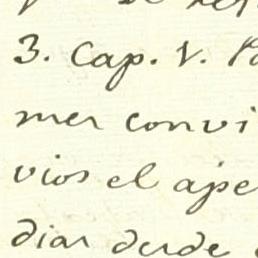 3. Cap. V.
mer convi
vios el ape
diar desde